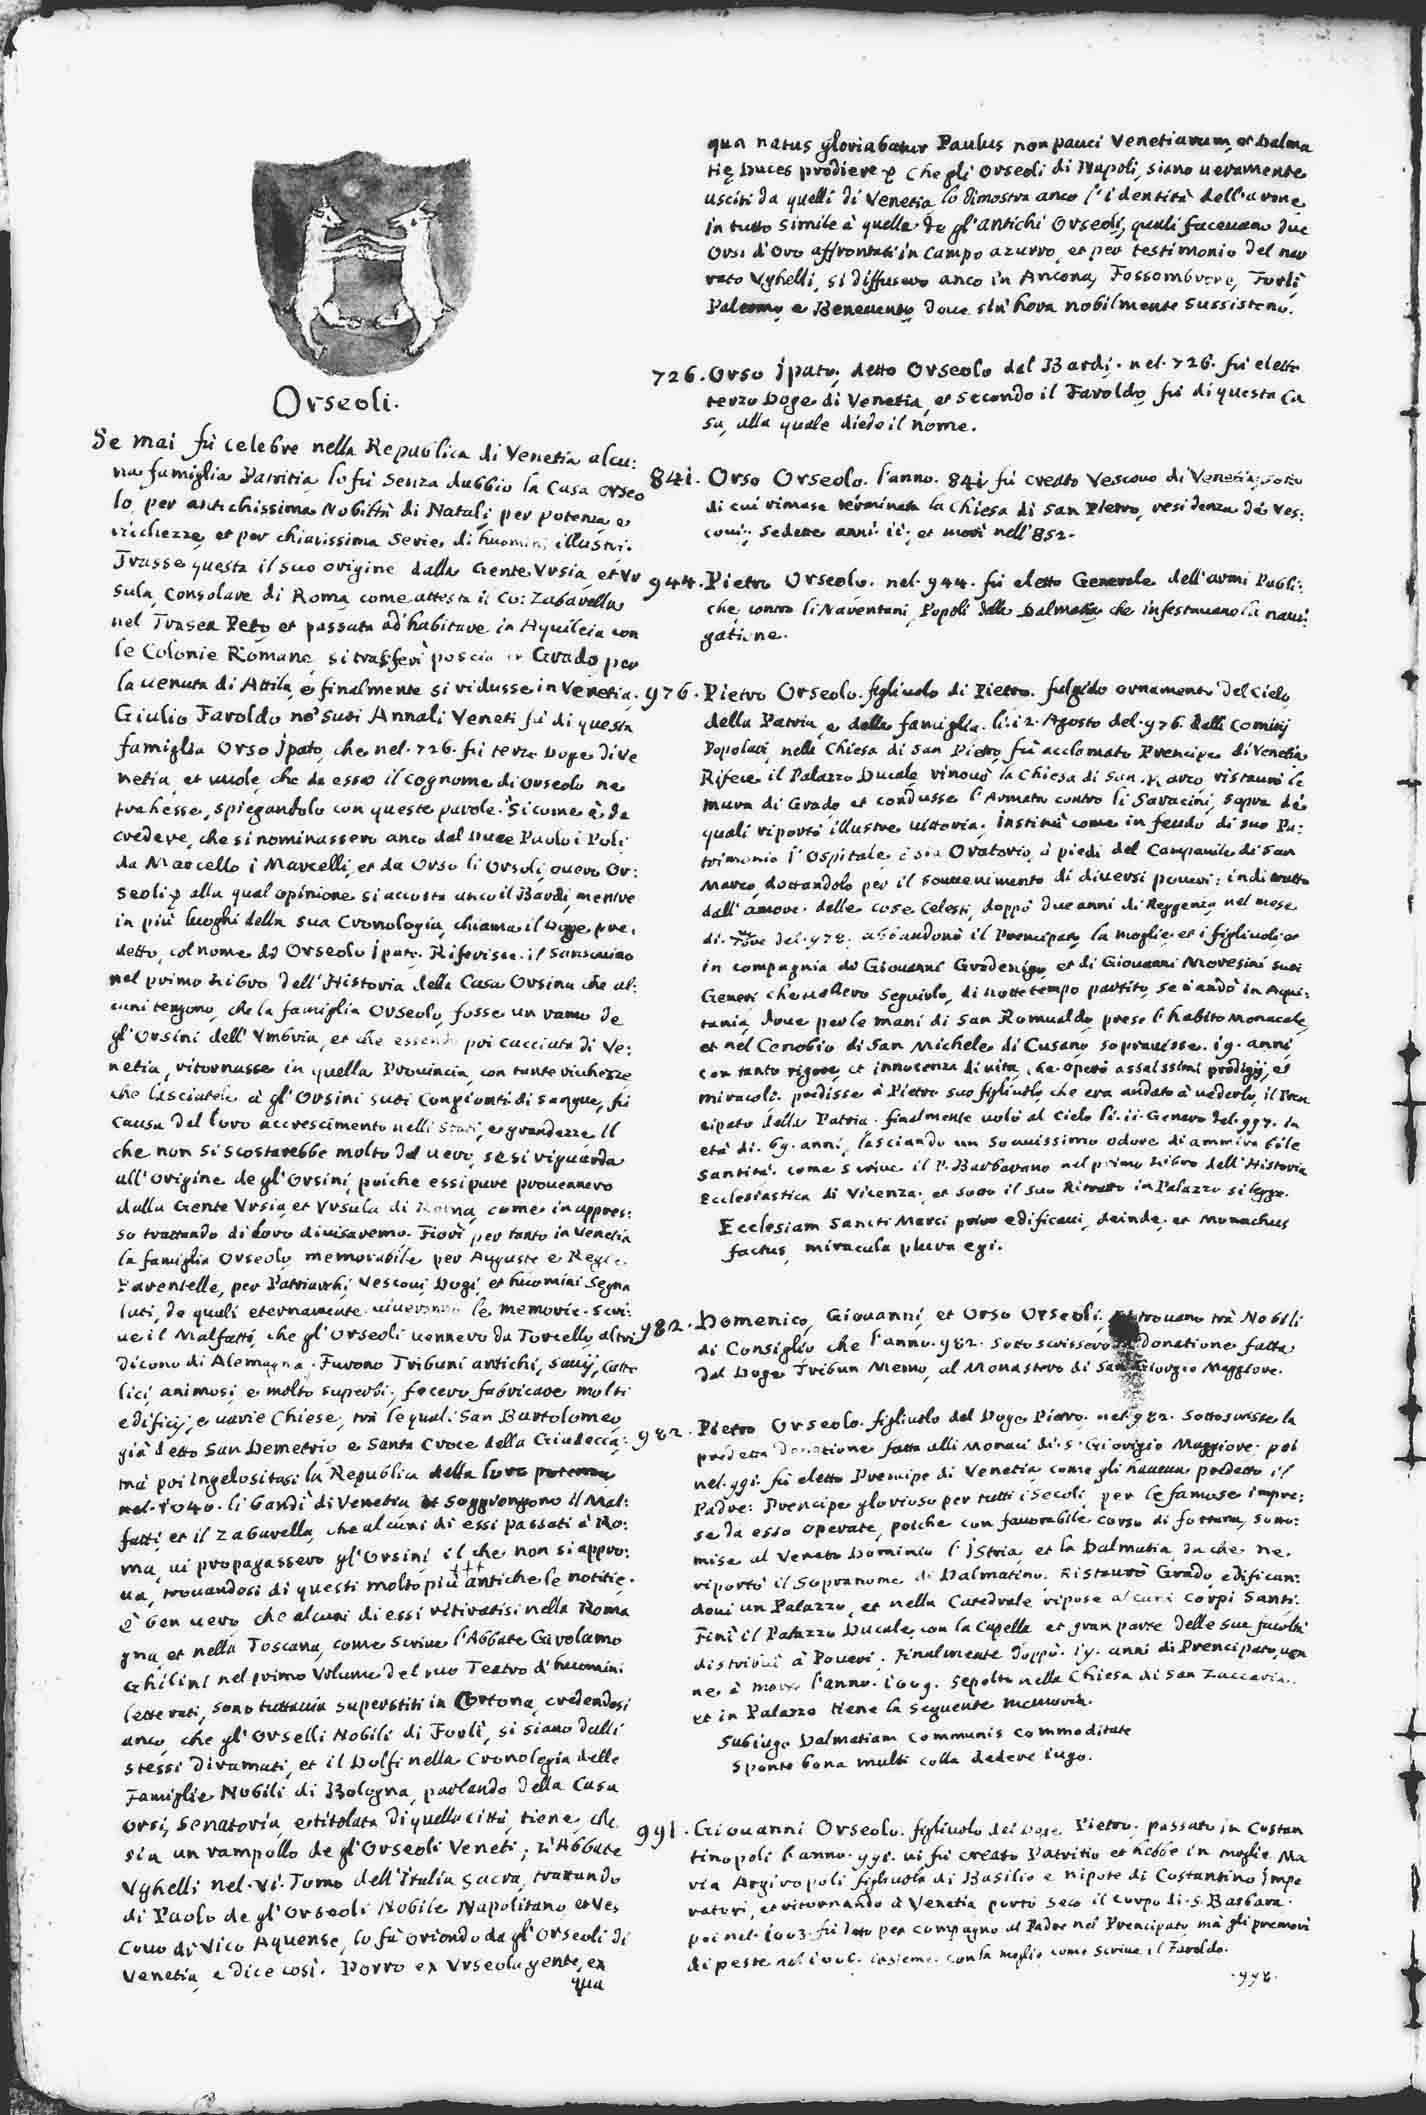 Orseoli.
Se mai fù celebre nella Republica di Venetia alcu:
na famiglia Patritia, lo fù senza dubbio la Casa Orseo
lo, per antichissima Nobiltà di Natali, per potenza e
richezze, et per chiarissima serie di huomini illustri.
Trasse questa il suo origine dalla Gente Ursia, et Ur
sula, Consolare di Roma, come attesta il Co: Zabarella
nel Trasea Peto, et passata ad habitare in Aquileia con
le Colonie Romane, si trasferì poscia in Grado per
la uenuta di Attila, e finalmente si ridusse in Venetia.
Giulio Faroldo ne' suoi Annali Veneti fà di questa
famiglia Orso Ipato, che nel. 726. fù terzo Doge di Ve
netia, et uuole, che da esso il cognome di Orseolo ne
trahesse, spiegandolo con queste parole. Si come è da
credere, che si nominassero anco dal Duce Paulo i Poli
da Marcello i Marcelli, et da Orso li Orsoli, ouero Or:
seoli, alla qual opinione si accosta anco il Bardi, mentre
in più luoghi della sua Cronologia, chiama il Doge pre,
detto, col nome de Orseolo Ipato. Riferisce il Sansouino
nel primo Libro dell'Historia della Casa Orsina che al:
cuni tengono, che la famiglia Orseolo, fosse un ramo de
gl'Orsini dell'Umbria, et che essendo poi cacciata di Ve:
netia, ritornasse in quella Prouincia, con tante richezze
che lasciatele à gl'Orsini suoi Congionti di sangue, fù
causa del loro accrescimento nelli Stati, e grandezze. Il
che non si scostarebbe molto dal uero, se si riguarda
all'origine de gl'Orsini, poiche essi pure prouennero
dalla Gente Ursia, et Ursula di Roma, come in appres:
so trattando di loro diuisaremo. Fiorì per tanto in Venetia
la famiglia Orseolo, memorabile per Auguste e Regie
Parentelle, per Patriarchi, Vescoui, Dogi, et huomini Segna
lati, de quali eternamente uiueranno le memorie. scri:
ue il Malfatti, che gl'Orseoli uennero da Torcello, altri
dicono di Alemagna. Furono Tribuni antichi, sauij, Catto
lici, animosi, e molto superbi, fecero fabricare molti
edificij, e uarie Chiese, trà le quali San Bartolomeo
già detto San Demetrio e Santa Croce della Giudecca:
mà poi ingelositasi la Republica della loro potenza
nel. 1040. li bandì di Venetia et soggiongono il Mal:
fatti, et il Zabarella, che alcuni di essi passati à Ro:
ma, ui propagassero gl'Orsini, il che non si appro:
ua, trouandosi di questi molto più antiche le notitie.
È ben uero che alcuni di essi ritiratisi nella Roma
gna, et nella Toscana, come scriue l'Abbate Girolamo
Ghilini nel primo Volume del suo Teatro d'huomini
letterati, sono tuttauia superstiti in Cortona, credendosi
anco, che gl'Orselli Nobili di Forlì, si siano dalli
stessi diramati, et il Dolfi nella Cronologia delle
Famiglie Nobili di Bologna, parlando della Casa
Orsi, Senatoria, e titolata di quella città, tiene, che
sia un rampollo de gl'Orseoli Veneti; L'Abbate
Ughelli nel. VI. Tomo dell'Italia Sacra, trattando
di Paolo de gl'Orseoli Nobile Napolitano, et Ves
couo di Vico Aquense, lo fà oriondo da gl'Orseoli di
Venetia, e dice così. Porro ex Urseola gente, ex
qua
qua natus gloriabatur Paulus non pauci Venetiarum, et Dalma
tię Duces prodiere. Che gli Orseoli di Napoli, siano ueramente
usciti da quelli di Venetia lo dimostra anco l'identità dell'arme
in tutto simile à quella de gl'antichi Orseoli, quali faceuano due
Orsi d'Oro affrontati in campo azurro, et per testimonio del nar
rato Ughelli, si diffusero anco in Ancona, Fossombrone, Forlì,
Palermo, e Beneuento, doue sin'hora nobilmente sussisteno.
726. Orso Ipato, detto Orseolo dal Bardi. nel. 726. fù eletto
terzo Doge di Venetia, et secondo il Faroldo, fù di questa Ca
sa, alla quale diede il nome.
841. Orso Orseolo. l'anno. 841 fù creato Vescouo di Venetia, sotto
di cui rimase terminata la Chiesa di San Pietro, residenza de Ves:
coui; Sedette anni. 11; et morì nell'852.
944. Pietro Orseolo. nel. 944. fù eletto Generale dell'armi Publi:
che, contro li Narentani, Popoli della Dalmatia che infestauano la naui:
gatione.
976. Pietro Orseolo. figliuolo di Pietro. fulgido ornamento del Cielo,
della Patria, e della famiglia. li. 12. Agosto del. 976. dalli Comitij
Popolari, nella Chiesa di San Pietro, fù acclamato Prencipe di Venetia
Rifece il Palazzo Ducale, rinouò la Chiesa di San Marco, ristaurò le
mura di Grado et condusse l'Armata contro li Saracini, sopra de
quali riportò illustre uittoria. Instituì come in feudo di suo Pa:
trimonio l'Ospitale, ò sia Oratorio, à piedi del Campanile di San
Marco, dottandolo per il souuenimento di diuersi poueri: indi tratto
dall'amore. delle cose Celesti, doppò due anni di Reggenza, nel mese
di. del. 978. abbandonò il Prencipato, la moglie, et i figliuoli, et
in compagnia de Giouanni Gradenigo, et di Giouanni Moresini suoi
Generi che uollero seguirlo, di notte tempo partito, se n'andò in Aqui:
tania, doue per le mani di San Romualdo, prese l'habito Monacale,
et nel Cenobio di San Michele di Cusano soprauisse. 19. anni
con tanto rigore, et innocenza di uita, che operò assaissimi prodigij, et
miracoli. predisse à Pietro suo figliuolo, che era andato à uederlo, il Pren
cipato della Patria. finalmente uolò al Cielo li. 11. Genero del. 997. in
età di. 69. anni, lasciando un soauissimo odore di ammirabile
Santità. come scriue il P. Barbarano nel primo Libro dell'Historia
Ecclesiastica di Vicenza. et sotto il suo Ritratto in Palazzo si legge.
Ecclesiam Sancti Marci, edificaui, deinde, et Monachus
factus, miracula plura egi.
982. Domenico, Giouanni, et Orso Orseoli, si trouano trà Nobili
di Consiglio che l'anno. 982. sottoscrissero la donatione fatta
dal Doge Tribun Memo, al Monastero di San Giorgio Maggiore.
982. Pietro Orseolo. figliuolo del Doge Pietro. nel. 982. sottoscrisse la
predetta donatione fatta alli Monaci di. S. Giorgio Maggiore. poi
nel. 991. fù eletto Prencipe di Venetia come gli haueua predetto il
Padre: Prencipe glorioso per tutti i Secoli, per le famose impre:
se da esso operate, poiche con fauorabile corso di fortuna, sotto:
mise al Veneto Dominio l'Istria, et la Dalmatia, da che ne.
riportò il sopranome di Dalmatino. Ristaurò Grado, edifican:
doui un Palazzo, et nella Catedrale ripose alcuni Corpi Santi.
Finì il Palazzo Ducale, con la Capella et gran parte delle sue facoltà
distribuì à Poueri. Finalmente doppò. 19. anni di Prencipato, uen
ne, à morte l'anno. 1009. sepolto nella Chiesa di San Zaccaria.
et in Palazzo tiene la seguente memoria.
Subiugo Dalmatiam communis commoditate
Sponte bona multi colla dedere iugo.
991. Giouanni Orseolo. figliuolo del Doge Pietro. passato in Costan
tinopoli l'anno. 991. ui fù creato Patritio et hebbe in moglie Ma
ria Argiropoli figliuola di Basilio e nipote di Costantino Impe
ratori, et ritornando à Venetia portò seco il corpo di. S. Barbara.
poi nel. 1003. fù dato per compagno al Padre nel Prencipato, mà gli premorì
di peste nel. 1006. insieme. con la moglie come scriue il Faroldo.
.998.